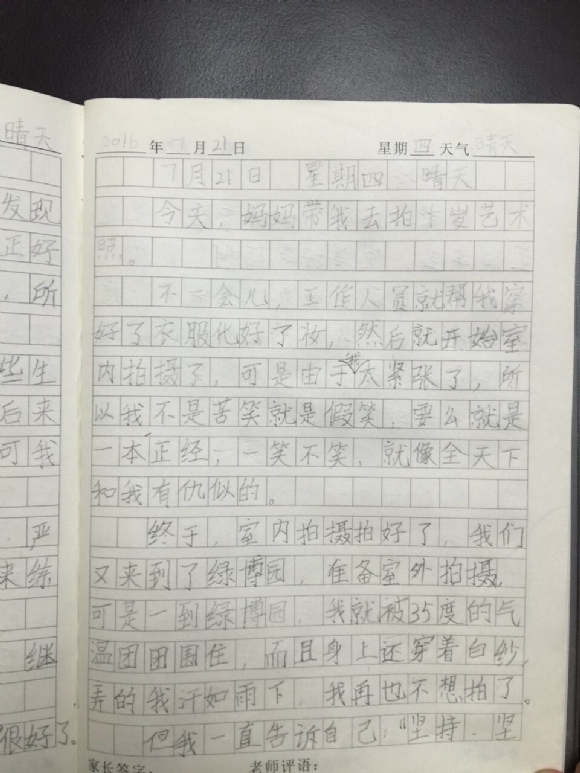 晴天
发现
正好
，所
些生
后来
可我
严
来练
继
很好了。
2016年 月21日 星期四天气晴天
7月21日 星期四 晴天
今天，妈妈带我去拍十岁艺术
照。
不一会儿，工作人员就帮我穿
好了衣服化好了妆，然后就开始室
内拍摄了，可是由于我太紧张了，所
以我不是苦笑就是假笑，要么就是
一本正经，一笑不笑，就像全天下
和我有仇似的。
终于，室内拍摄拍好了，我们
又来到了绿博园，准备室外拍摄，
可是一到绿博园，我就被35度的气
温团团围住，而且身上还穿着白纱，
弄的我汗如雨下，我再也不想拍了。
但我一直告诉自己："坚持，坚
家长签字： 老师评语：